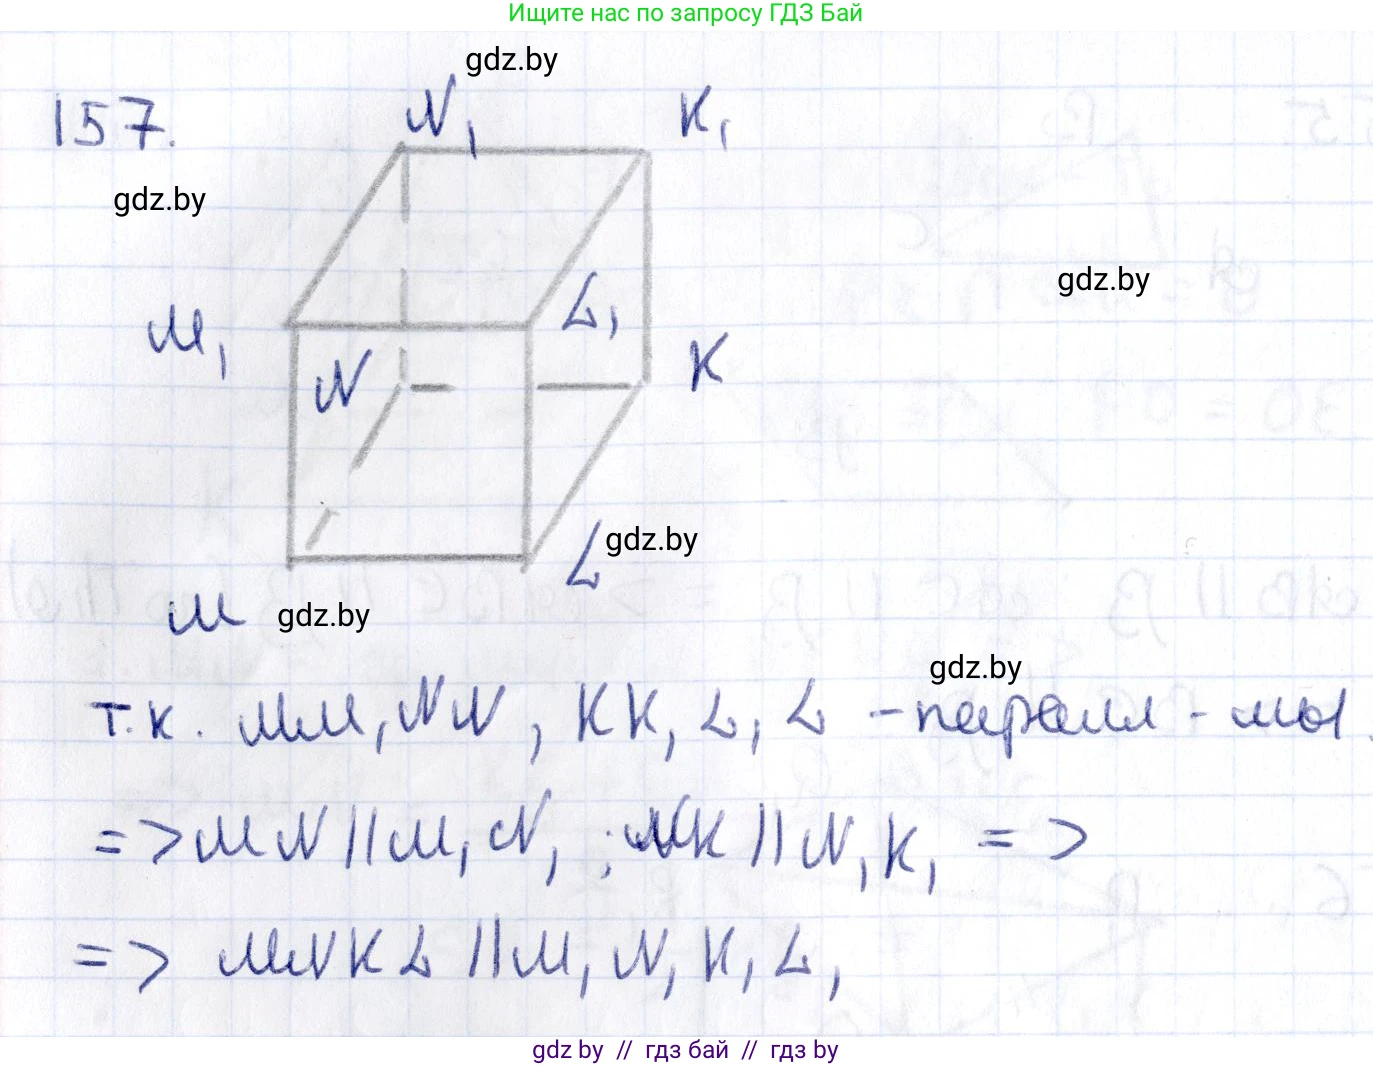 Ищите нас по запросу ГДЗ Бай
gdz.by
157.
N₁
K₁
gdz.by
gdz.by
M₁
L₁
N
K
L
gdz.by
M
gdz.by
gdz.by
т.к. MM₁NN₁, KK₁L₁L - паралл-мы.
=> MN || M₁N₁; NK || N₁K₁ =>
=> MNKL || M₁N₁K₁L₁
gdz by // гдз бай // гдз by